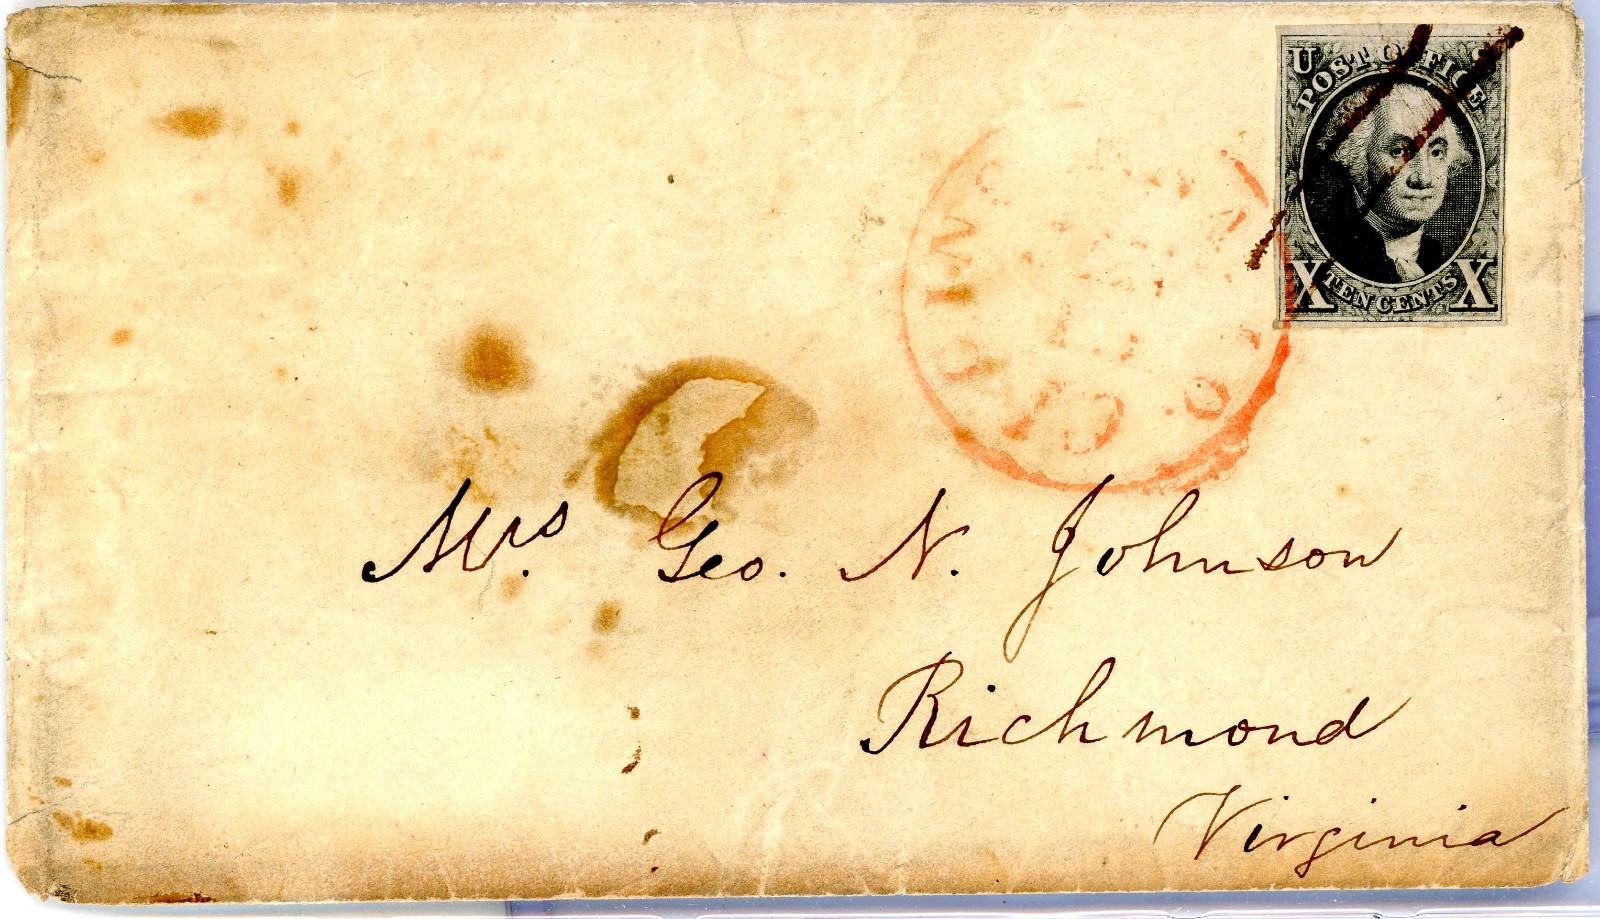 U S
POST OFFICE
X TEN CENTS X
Mrs. Geo. N. Johnson
Richmond
Virginia